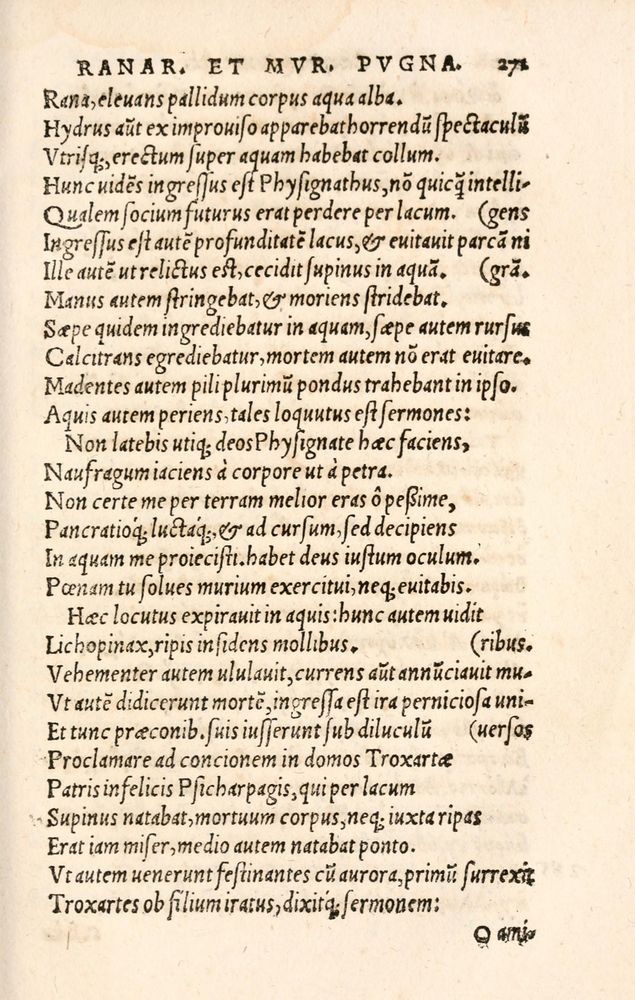 RANAR. ET MVR. PVGNA. 271
Rana, eleuans pallidum corpus aqua alba.
Hydrus aũt ex improuiso apparebat horrendũ spectaculũ
Vtrisq;, erectum super aquam habebat collum.
Hunc uidẽs ingressus est Physignathus, nõ quicq̃ intelli-
Qualem socium futurus erat perdere per lacum. (gens
Ingressus est autẽ profunditatẽ lacus, & euitauit parcã ni
Ille autẽ ut relictus est, cecidit supinus in aquã. (grã.
Manus autem stringebat, & moriens stridebat.
Sæpe quidem ingrediebatur in aquam, sæpe autem rursus
Calcitrans egrediebatur, mortem autem nõ erat euitare.
Madentes autem pili plurimũ pondus trahebant in ipso.
Aquis autem periens, tales loquutus est sermones:
Non latebis utiq; deos Physignate hæc faciens,
Naufragum iaciens à corpore ut à petra.
Non certe me per terram melior eras ô peßime,
Pancratioq́; luctaq́;, & ad cursum, sed decipiens
In aquam me proiecisti. habet deus iustum oculum.
Pœnam tu solues murium exercitui, neq; euitabis.
Hæc locutus expirauit in aquis: hunc autem uidit
Lichopinax, ripis insidens mollibus. (ribus.
Vehementer autem ululauit, currens aũt annũciauit mu-
Vt autẽ didicerunt mortẽ, ingressa est ira perniciosa uni-
Et tunc præconib. suis iusserunt sub diluculũ (uersos
Proclamare ad concionem in domos Troxartæ
Patris infelicis Psicharpagis, qui per lacum
Supinus natabat, mortuum corpus, neq; iuxta ripas
Erat iam miser, medio autem natabat ponto.
Vt autem uenerunt festinantes cũ aurora, primũ surrexit
Troxartes ob filium iratus, dixitq́; sermonem:
O ami-